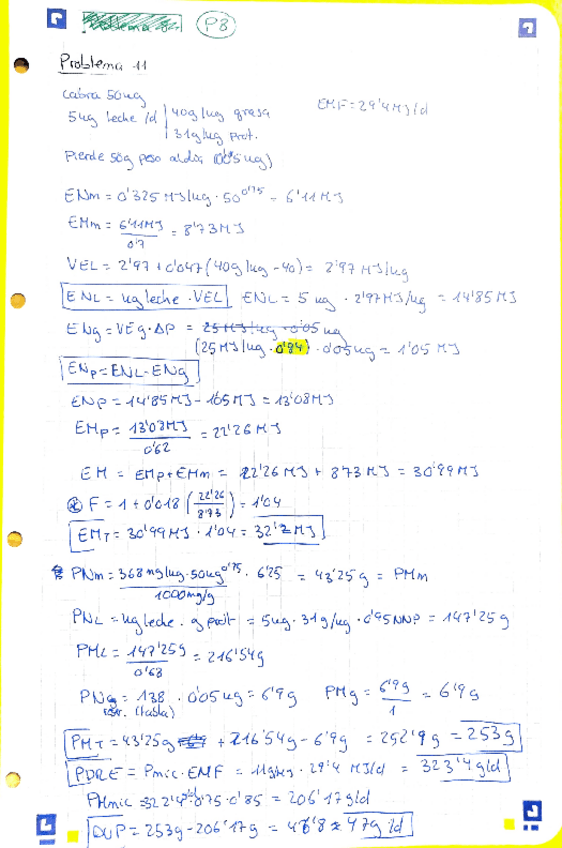 P3
Problema 11
Cabra 50kg
5kg leche /d | 40g/kg grasa
| 31g/kg prot.
EMF=29'4MJ/d
Pierde 50g peso al día (0'05kg)
ENm = 0'325 MJ/kg · 50^0'75 = 6'11MJ
EMm = 6'11MJ / 0'7 = 8'73MJ
VEL = 2'97 + 0'047 (40g/kg - 40) = 2'97 MJ/kg
ENL = kg leche · VEL ENL = 5 kg · 2'97MJ/kg = 14'85 MJ
ENg = VEg · ΔP = 25 MJ/kg · 0'05 kg
(25 MJ/kg · 0'84) · 0'05kg = 1'05 MJ
ENp = ENL - ENg
ENp = 14'85MJ - 1'05MJ = 13'08MJ
EMp = 13'03MJ / 0'62 = 22'26 MJ
EM = EMp + EMm = 22'26 MJ + 8'73 MJ = 30'99 MJ
F = 1 + 0'018 (22'26 / 8'73) = 1'04
EMT = 30'99MJ · 1'04 = 32'2 MJ
PNm = 368 mg/kg · 50kg^0'75 · 6'25 / 1000mg/g = 43'25 g = PMm
PNL = kg leche · g prot = 5kg · 31 g/kg · 0'95 NNP = 147'25 g
PML = 147'25g / 0'68 = 216'54g
PNg = 138 · 0'05 kg = 6'9 g PMg = 6'9g / 1 = 6'9 g
(tabla)
PMT = 43'25g + 216'54g - 6'9g = 252'9g = 253g
PDRE = Pmic · EMF = 11g/MJ · 29'4 MJ/d = 323'4g/d
PMmic = 322'4 · 0'75 · 0'85 = 206'17 g/d
DUP = 253g - 206'17g = 46'8 ≈ 47g/d